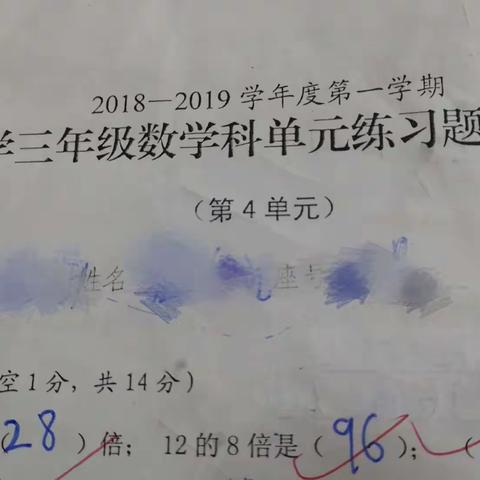 2018—2019学年度第一学期
学三年级数学科单元练习题
（第4单元）
姓名 座号
空1分，共14分）
（28 ）倍； 12的8倍是（ 96 ）； （